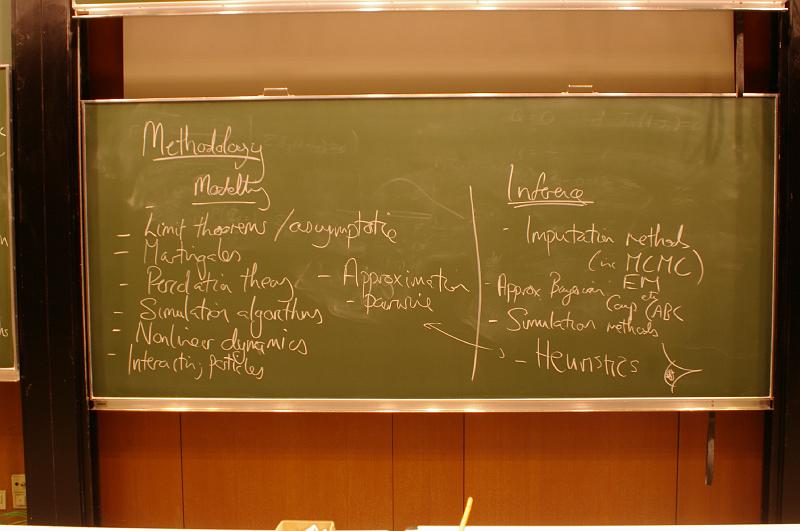 Methodology
Modelling
- Limit theorems / asymptotic
- Martingales
- Percolation theory
- Simulation algorithms
- Nonlinear dynamics
- Interacting particles
- Approximation
- pairwise
Inference
- Imputation methods
(inc MCMC)
EM
etc
- Approx Bayesian
Comp (ABC
- Simulation methods
- Heuristics